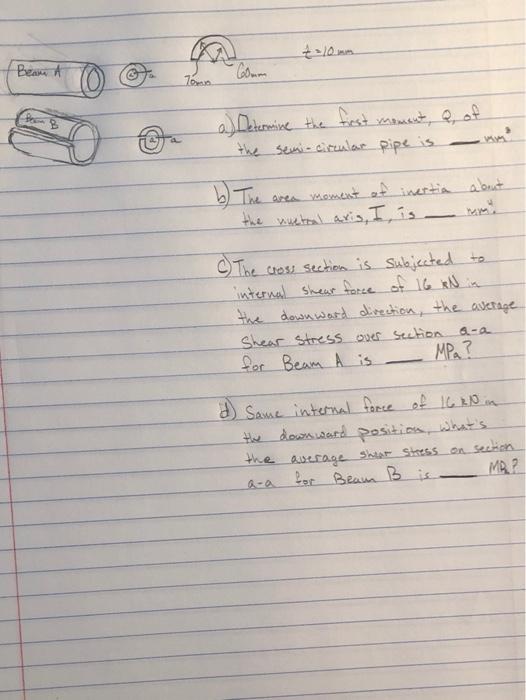 t=10mm
Beam A
a
70mm 60mm
B
a
a
a) Determine the first moment, Q, of
the semi-circular pipe is ___ mm³
b) The area moment of inertia about
the nuetral axis, I, is ___ mm⁴.
c) The cross section is subjected to
internal shear force of 16 kN in
the downward direction, the average
shear stress over section a-a
for Beam A is ___ MPa?
d) Same internal force of 16 kN in
the downward position, what's
the average shear stress on section
a-a for Beam B is ___ MPa?